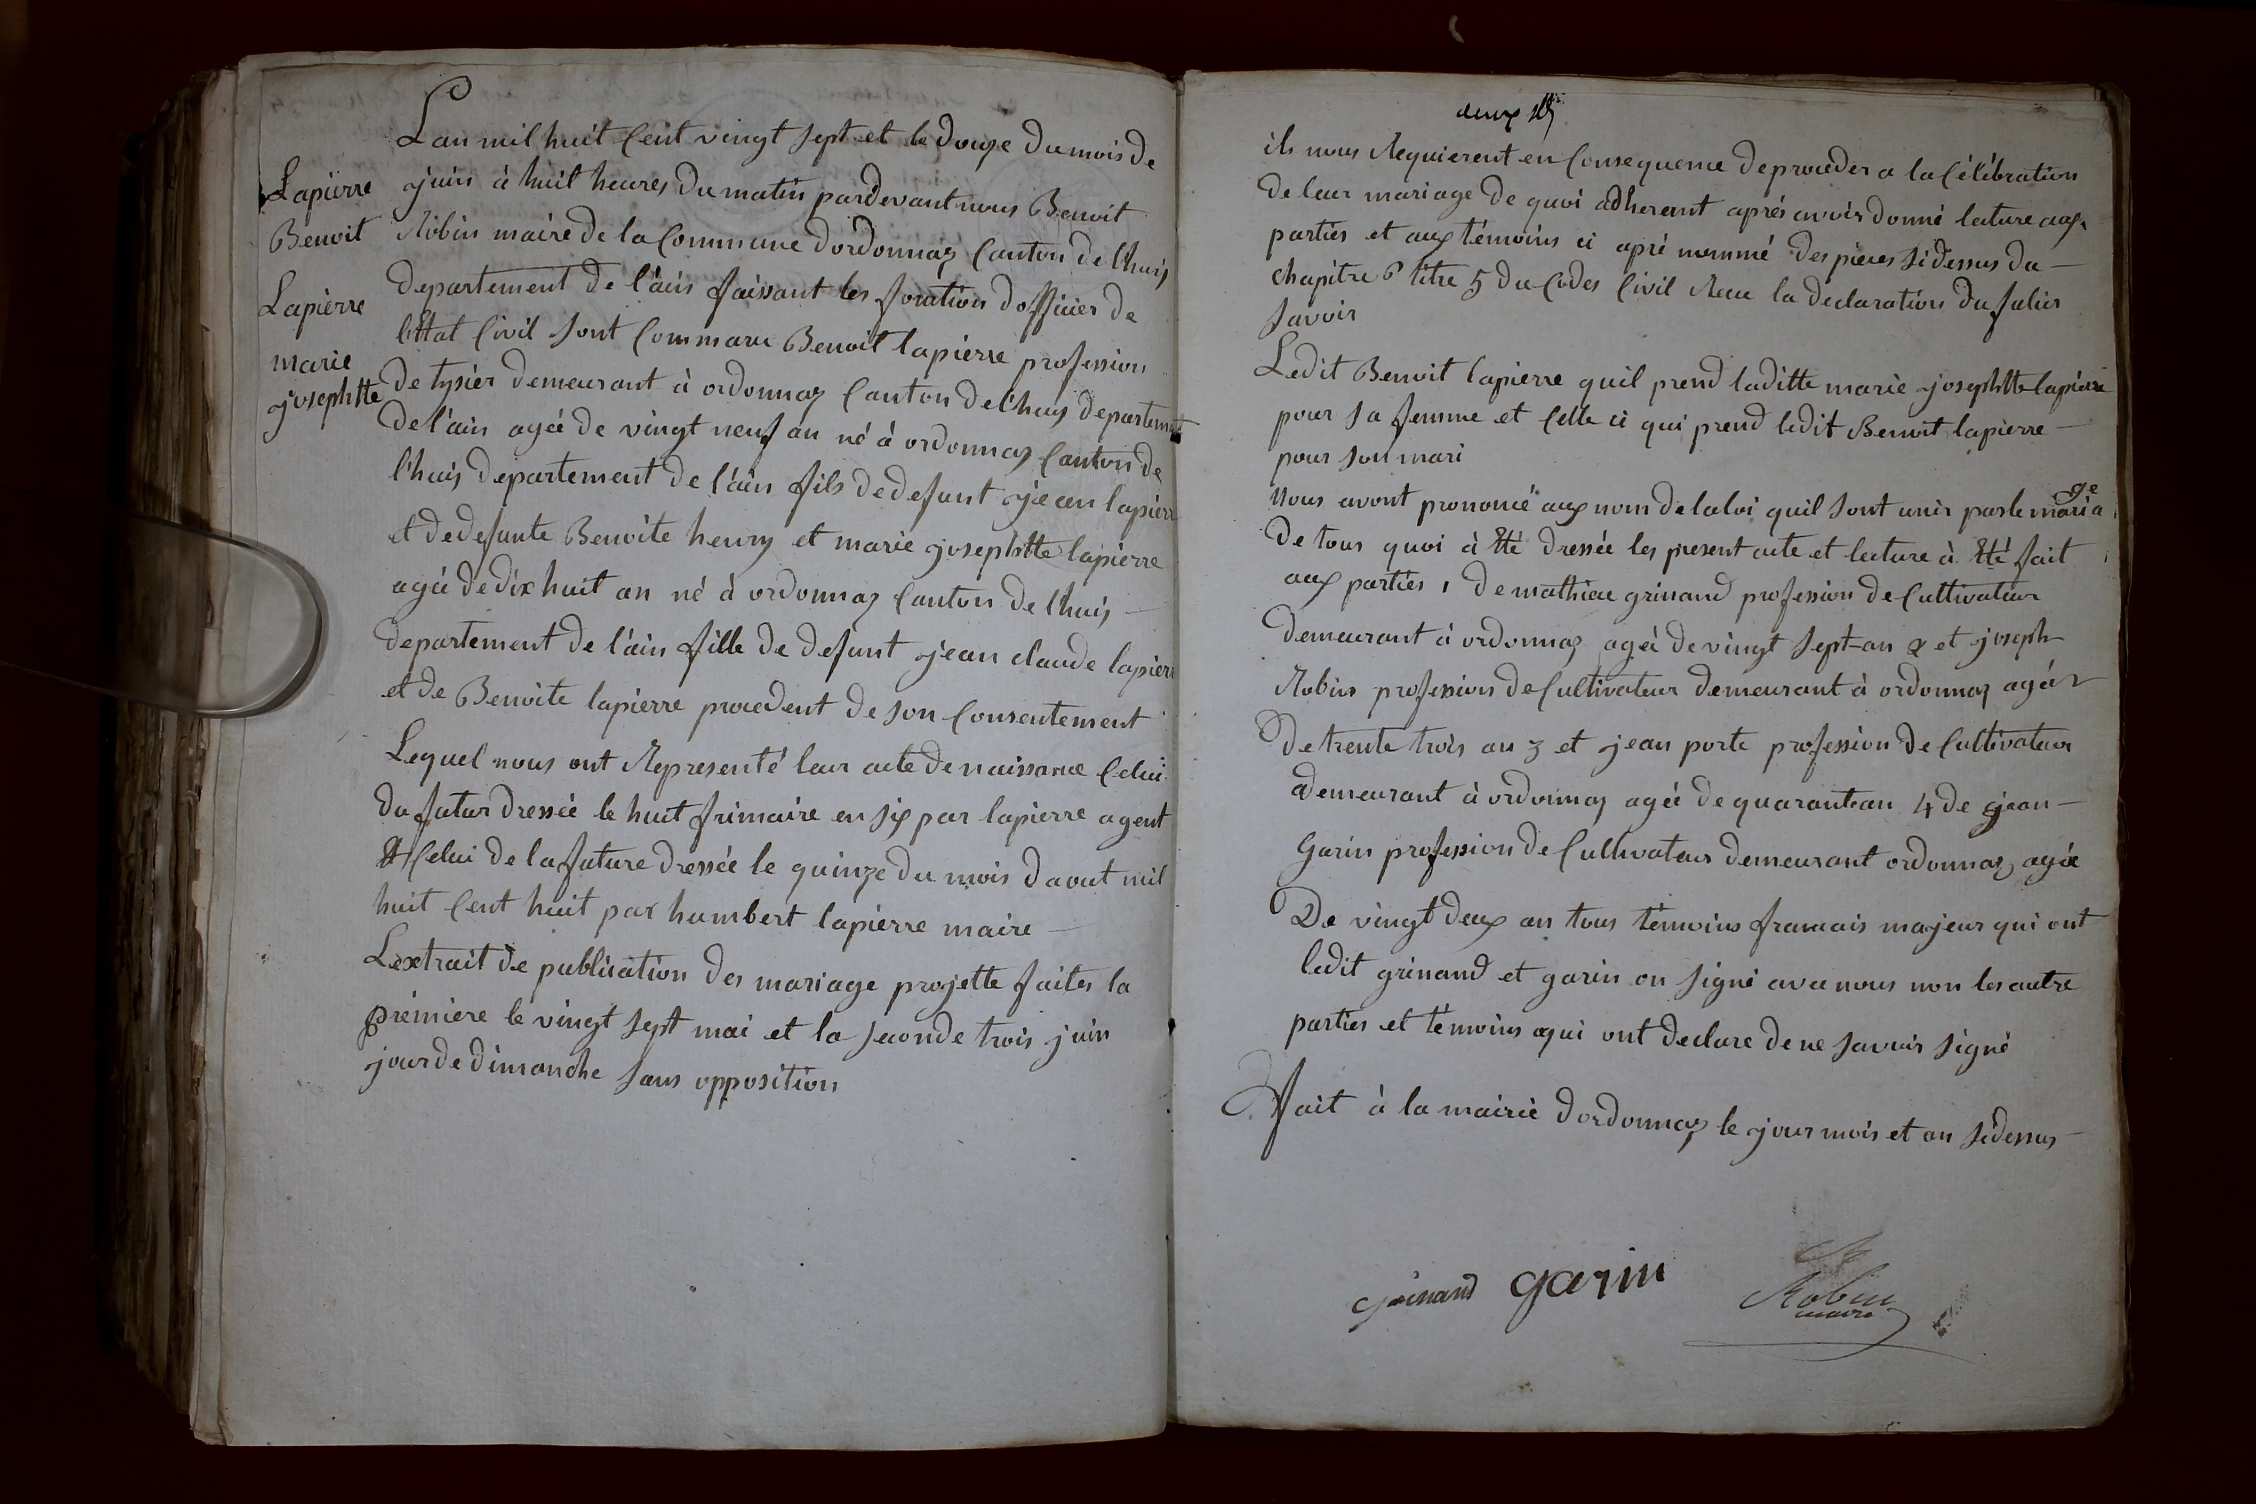 Lapierre
Benoit
Lapierre
marie
josephtte
L'an mil huit Cent vingt sept et le douze du mois de
juin à huit heures du matin pardevant nous Benoit
Robin maire de la Commune d'ordonnaz Canton de l'huis
departement de l'ain faissant les fonction d'officier de
l'ettat Civil sont Commaru Benoit lapierre profession
de tysier demeurant à ordonnaz Canton de l'huis departement
de l'ain agée de vingt neuf an né à ordonnaz Canton de
l'huis departement de l'ain fils de defunt jean lapierre
et de defunte Benoite henry et marie josephtte lapierre
agée de dix huit an né à ordonnaz Canton de l'huis
departement de l'ain fille de defunt jean claude lapierre
et de Benoite lapierre procedent de son Consentement
Lequel nous ont Representé leur acte de naissance Celui
du futur dressée le huit frimaire en six par lapierre agent
Et Celui de la future dressée le quinze du mois d'aout mil
huit Cent huit par humbert lapierre maire
Lextrait de publication des mariage projette faites la
premiere le vingt sept mai et la seconde trois juin
jour de dimanche sans opposition
deux
ils nous Requierent en Consequence de proceder a la Célébration
de leur mariage de quoi adherent aprés avoir donné lecture aux
parties et aux témoins ci aprè nommé des pieces si dessus du
chapitre 6 titre 5 du Codes Civil Recu la declaration du
savoir
Ledit Benoit lapierre quil prend laditte marie josephtte lapierre
pour sa femme et Celle ci qui prend ledit Benoit lapierre
pour son mari
Nous avont prononcé aux nom de la loi quil sont unis par le mariage
De tous quoi à Eté dressée les present acte et lecture à Eté fait
aux parties 1 de mathieu grinand profession de Cultivateur
demeurant à ordonnaz agée de vingt sept an 2 et joseph
Robin profession de Cultivateur demeurant à ordonnaz agée
de trente trois an 3 et jean porte profession de Cultivateur
demeurant à ordonnaz agée de quarante an 4 de jean
Garin profession de Cultivateur demeurant ordonnaz agée
De vingt deux an tous témoins francais majeur qui ont
ledit grinand et garin on signé avec nous non les autre
parties et témoins qui ont declare de ne savoir signé
Fait à la mairie d'ordonnaz le jour mois et an sidessus
grinand garin Robin
maire